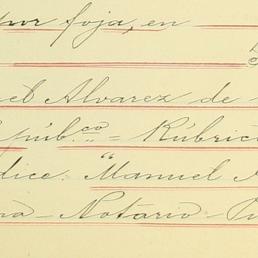 por foja, en
el Alvarez de
púb.co = Rúbric
dice: "Manuel
Notario - Pu